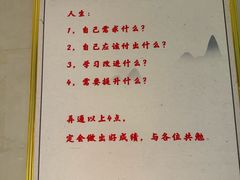 人生：
1，自己需求什么？
2，自己应该付出什么？
3，学习改进什么？
4，需要提升什么？
弄通以上4点，
定会做出好成绩，与各位共勉